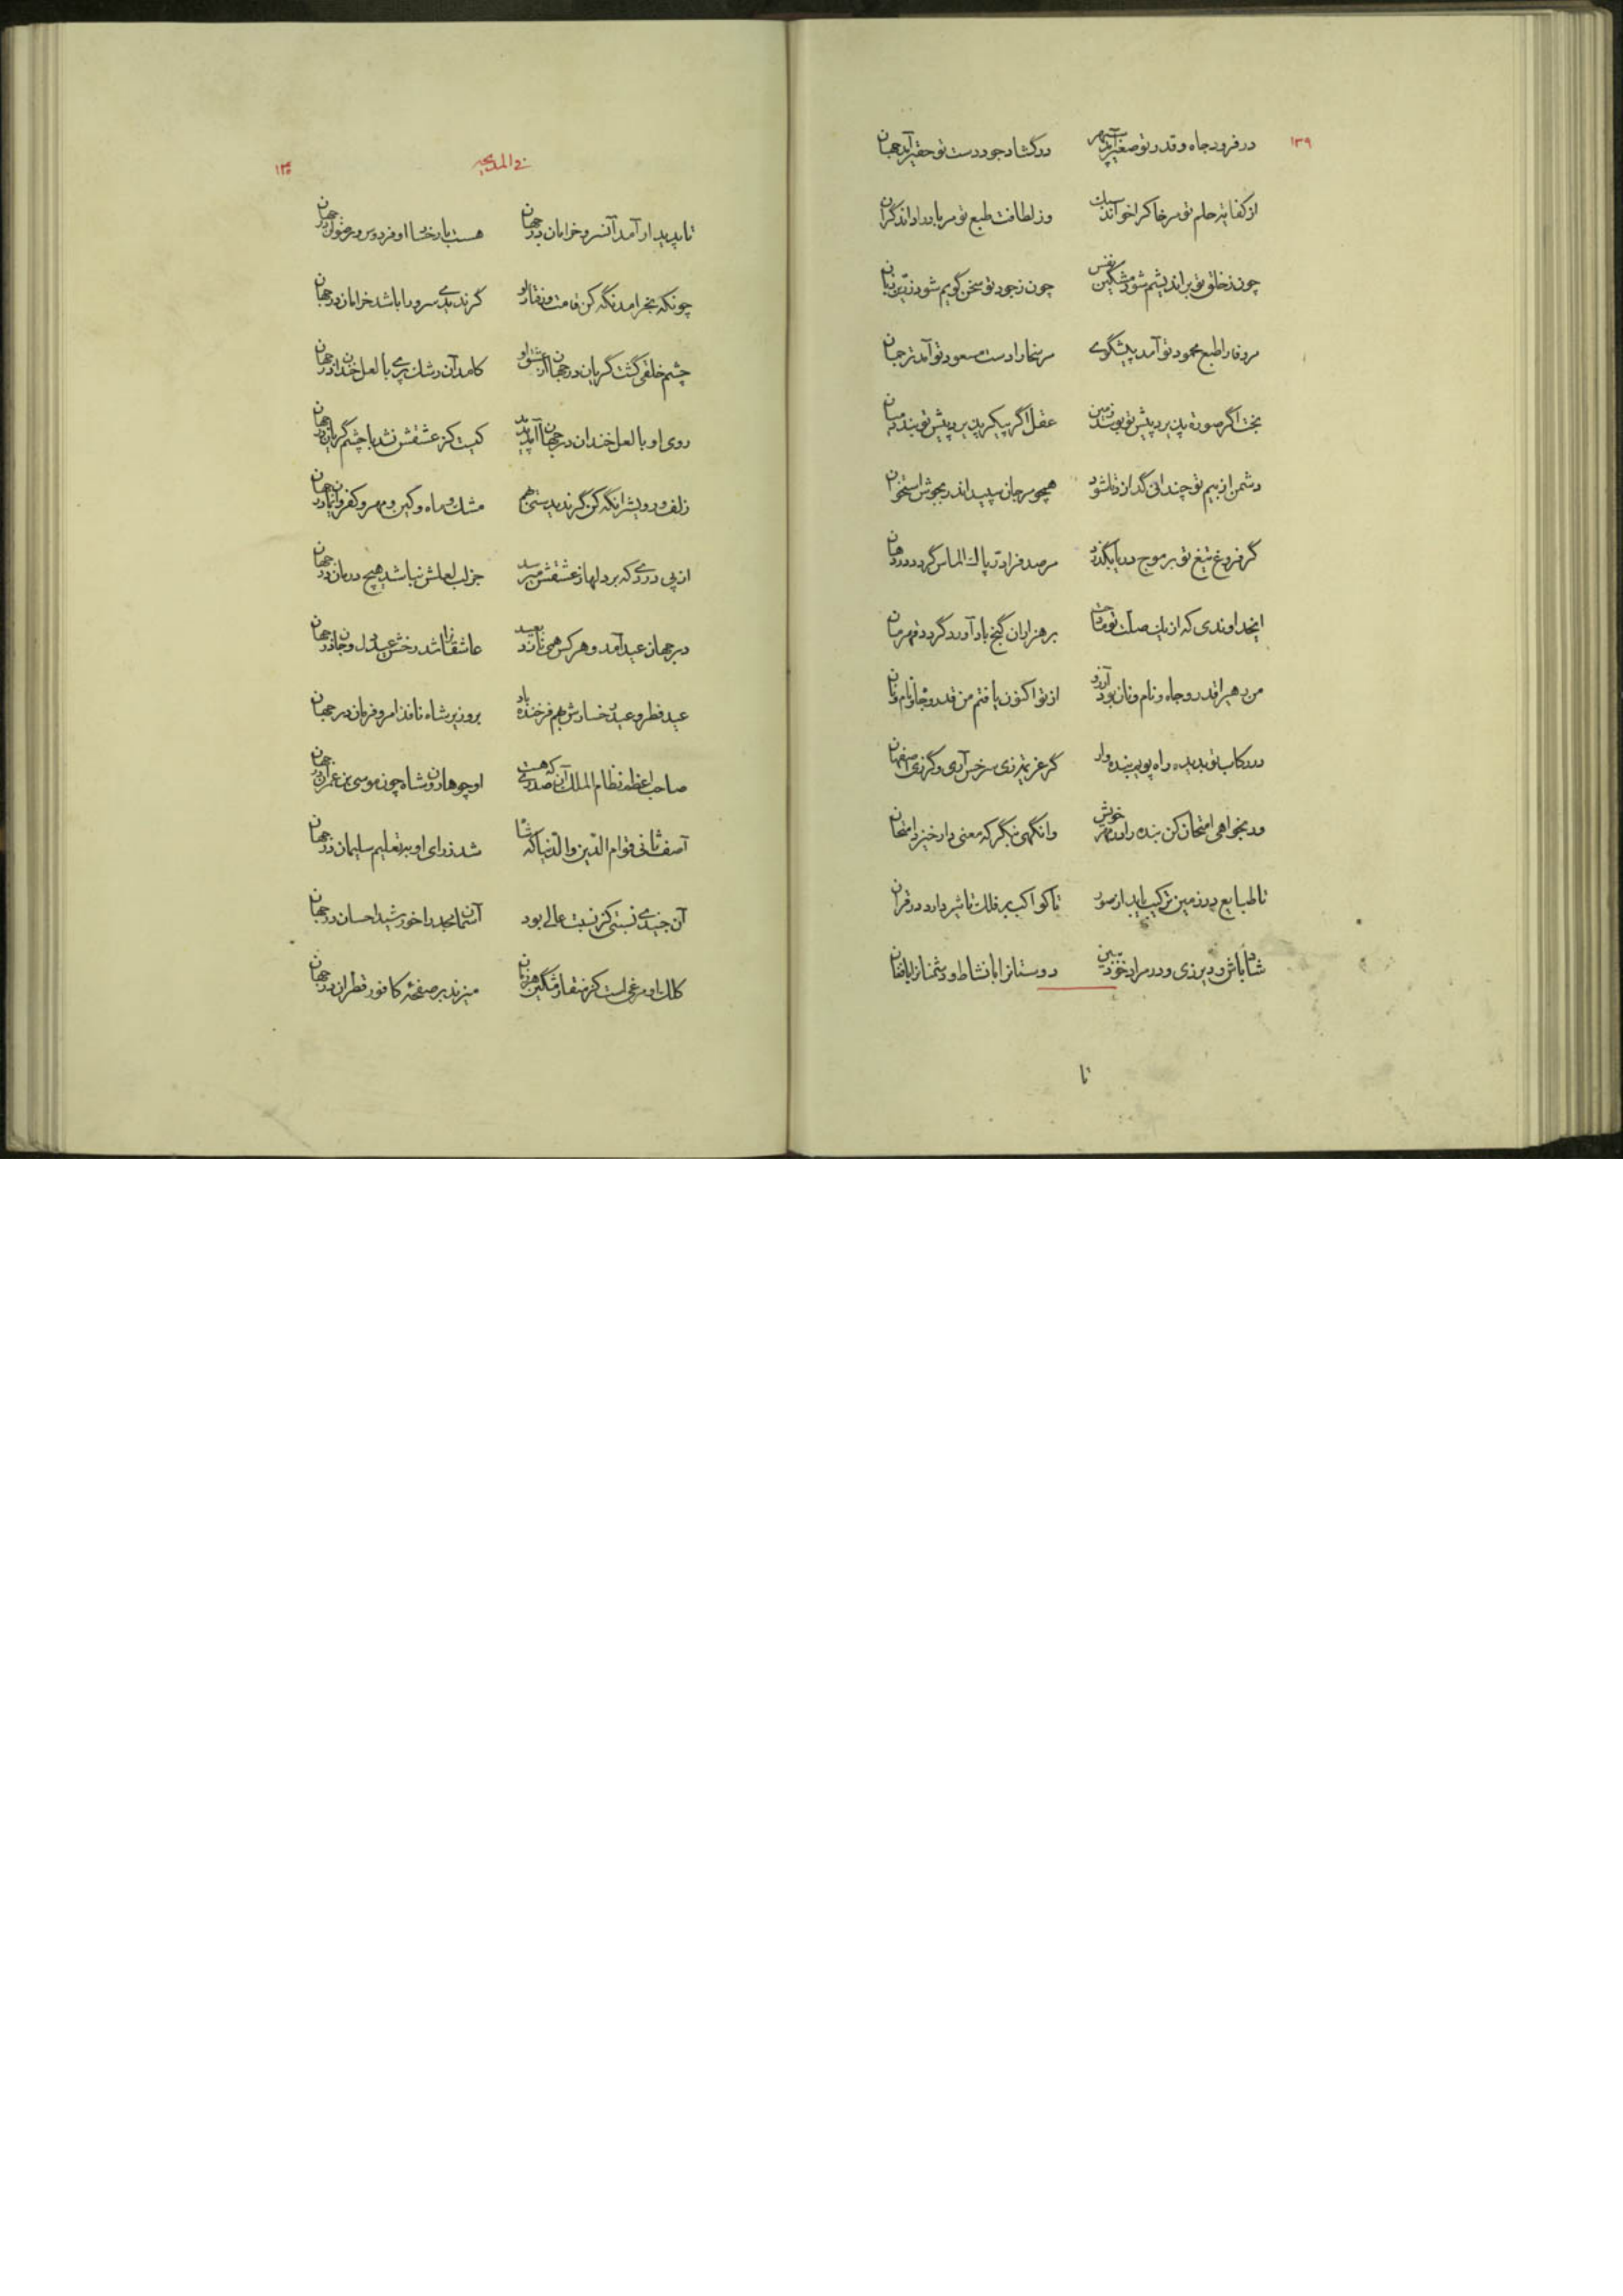 ۱۳۹
در فرود جاه و قدر تو صغیر آید سپهر در گشاد جود دست تو حقیر آید جهان
از کفایة حلم تو مر خاکرا خواند سبک وز لطافت طبع تو مر باد را داند گران
چون ز خلق تو براندیشم شود مشکین نفس چون ز جود تو سخن گویم شود زرین زبان
مر وفا را طبع محمود تو آمد پیشگوی مر سخا را دست مسعود تو آمد ترجمان
بخت اگر صورة پذیرد پیش تو بوسد زمین عقل اگر پیکر پذیرد پیش تو بندد میان
دشمن از بیم تو چندانی گدازد تا شود همچو مرجان سپید اندر بجوش استخوان
گر فروغ تیغ تو بر موج دریا بگذرد مر صدف را در پاک الماس گردد در دهان
ایخداوندی که از یک صلت تو بر هزاران گنج باد آورد گردد قهرمان
من رهیرا قدر و جاه و نام و نان بود آرزو از تو اکنون یافتم من قدر و جاه و نام و نان
در رکاب تو بدیده راه پویم بنده وار گر عزیز تزری سرخس آری و گر زی اصفهان
ور بخواهی امتحان کن بنده را در مهر خویش وانگهی بنگر که معنی دار خیزد امتحان
تا طبایع در زمین ترکیب یابد از صور تا کواکب بر فلک تاثیر دارد در قران
شاد باش و دیر زی و در مراد خود ببین دوستانرا با نشاط و دشمنانرا با فغان
تا
فی المدیحه
۱۴۰
تا پدیدار آمد آنسرو خرامان در جهان هست با رخسار او فردوس و رضوان در جهان
چونکه بخرامد نگه کن قامت و رفتار او گر ندیدی سرو را باشد خرامان در جهان
چشم خلقی گشت گریان در جهان از عشق او کامد آن رشک پری با لعل خندان در جهان
روی او با لعل خندان در جهان آمد پدید کیست کز عشقش نشد با چشم گریان در جهان
زلف و رویشرا نگه کن گر ندیدستی بهم مشک و ماه و کین و مهر و کفر و ایمان در جهان
از پی دردی که بر دلها ز عشقش میرسد جز لب لعلش نباشد هیچ درمان در جهان
در جهان عید آمد و هر کس همی نازد بعید عاشقانرا شد رخش عید دل و جان در جهان
عید فطر و عید رخسارش بهم فرخنده باد بر وزیر شاه نافذ امر و فرمان در جهان
صاحب اعظم نظام الملک آن صدری که هست او چو هارون و شاه چون موسی بن عمران در جهان
آصف ثانی قوام الدین والدنیا که شاه شد ز رای او بتعلیم سلیمان در جهان
آن جنیدی نسبتی کز نسبت عالی بود آسمان مجد را خورشید احسان در جهان
کلک او مرغی است کز منقار مشکین هر زمان میزند بر صفحهٔ کافور قطران در جهان